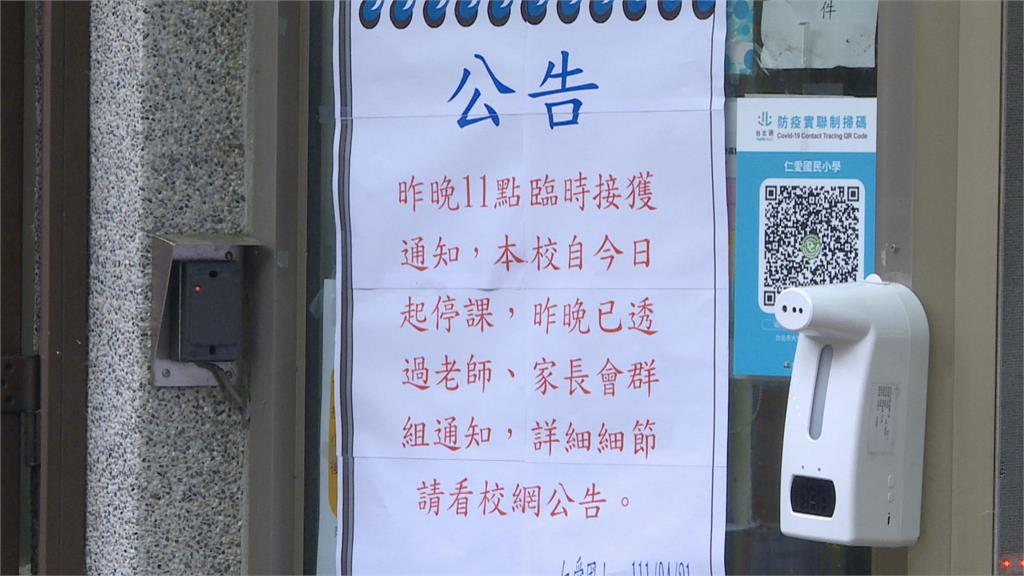 公告
昨晚11點臨時接獲
通知，本校自今日
起停課，昨晚已透
過老師、家長會群
組通知，詳細細節
請看校網公告。
111/04/01
件
台北通
防疫實聯制掃碼
Covid-19 Contact Tracing QR Code
仁愛國民小學